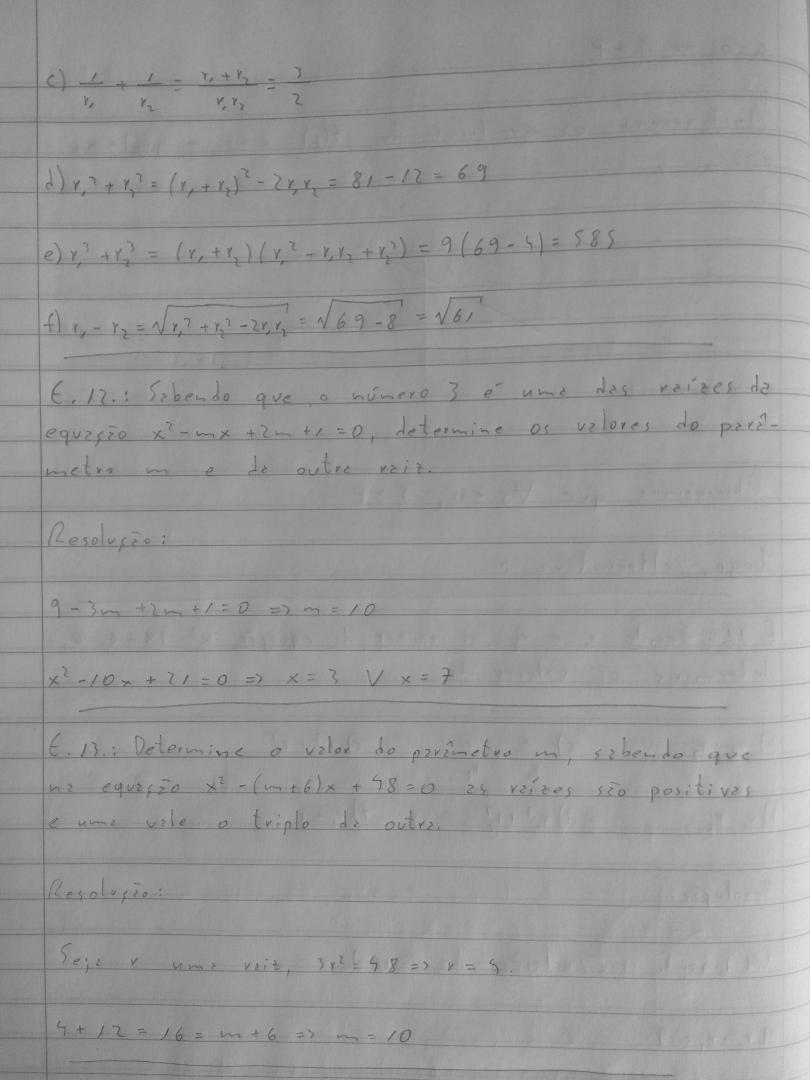 c) 1/r₁ + 1/r₂ = (r₁ + r₂)/(r₁r₂) = 3/2
d) r₁² + r₂² = (r₁ + r₂)² - 2r₁r₂ = 81 - 12 = 69
e) r₁³ + r₂³ = (r₁ + r₂)(r₁² - r₁r₂ + r₂²) = 9(69 - 4) = 585
f) r₁ - r₂ = √(r₁² + r₂² - 2r₁r₂) = √(69 - 8) = √61
E. 12.: Sabendo que o número 3 é uma das raízes da
equação x² - mx + 2m + 1 = 0, determine os valores do parâ-
metro m e da outra raiz.
Resolução:
9 - 3m + 2m + 1 = 0 => m = 10
x² - 10x + 21 = 0 => x = 3 ∨ x = 7
E. 13.: Determine o valor do parâmetro m, sabendo que
na equação x² - (m+6)x + 48 = 0 as raízes são positivas
e uma vale o triplo da outra.
Resolução:
Seja r uma raiz, 3r² = 48 => r = 4.
4 + 12 = 16 = m + 6 => m = 10